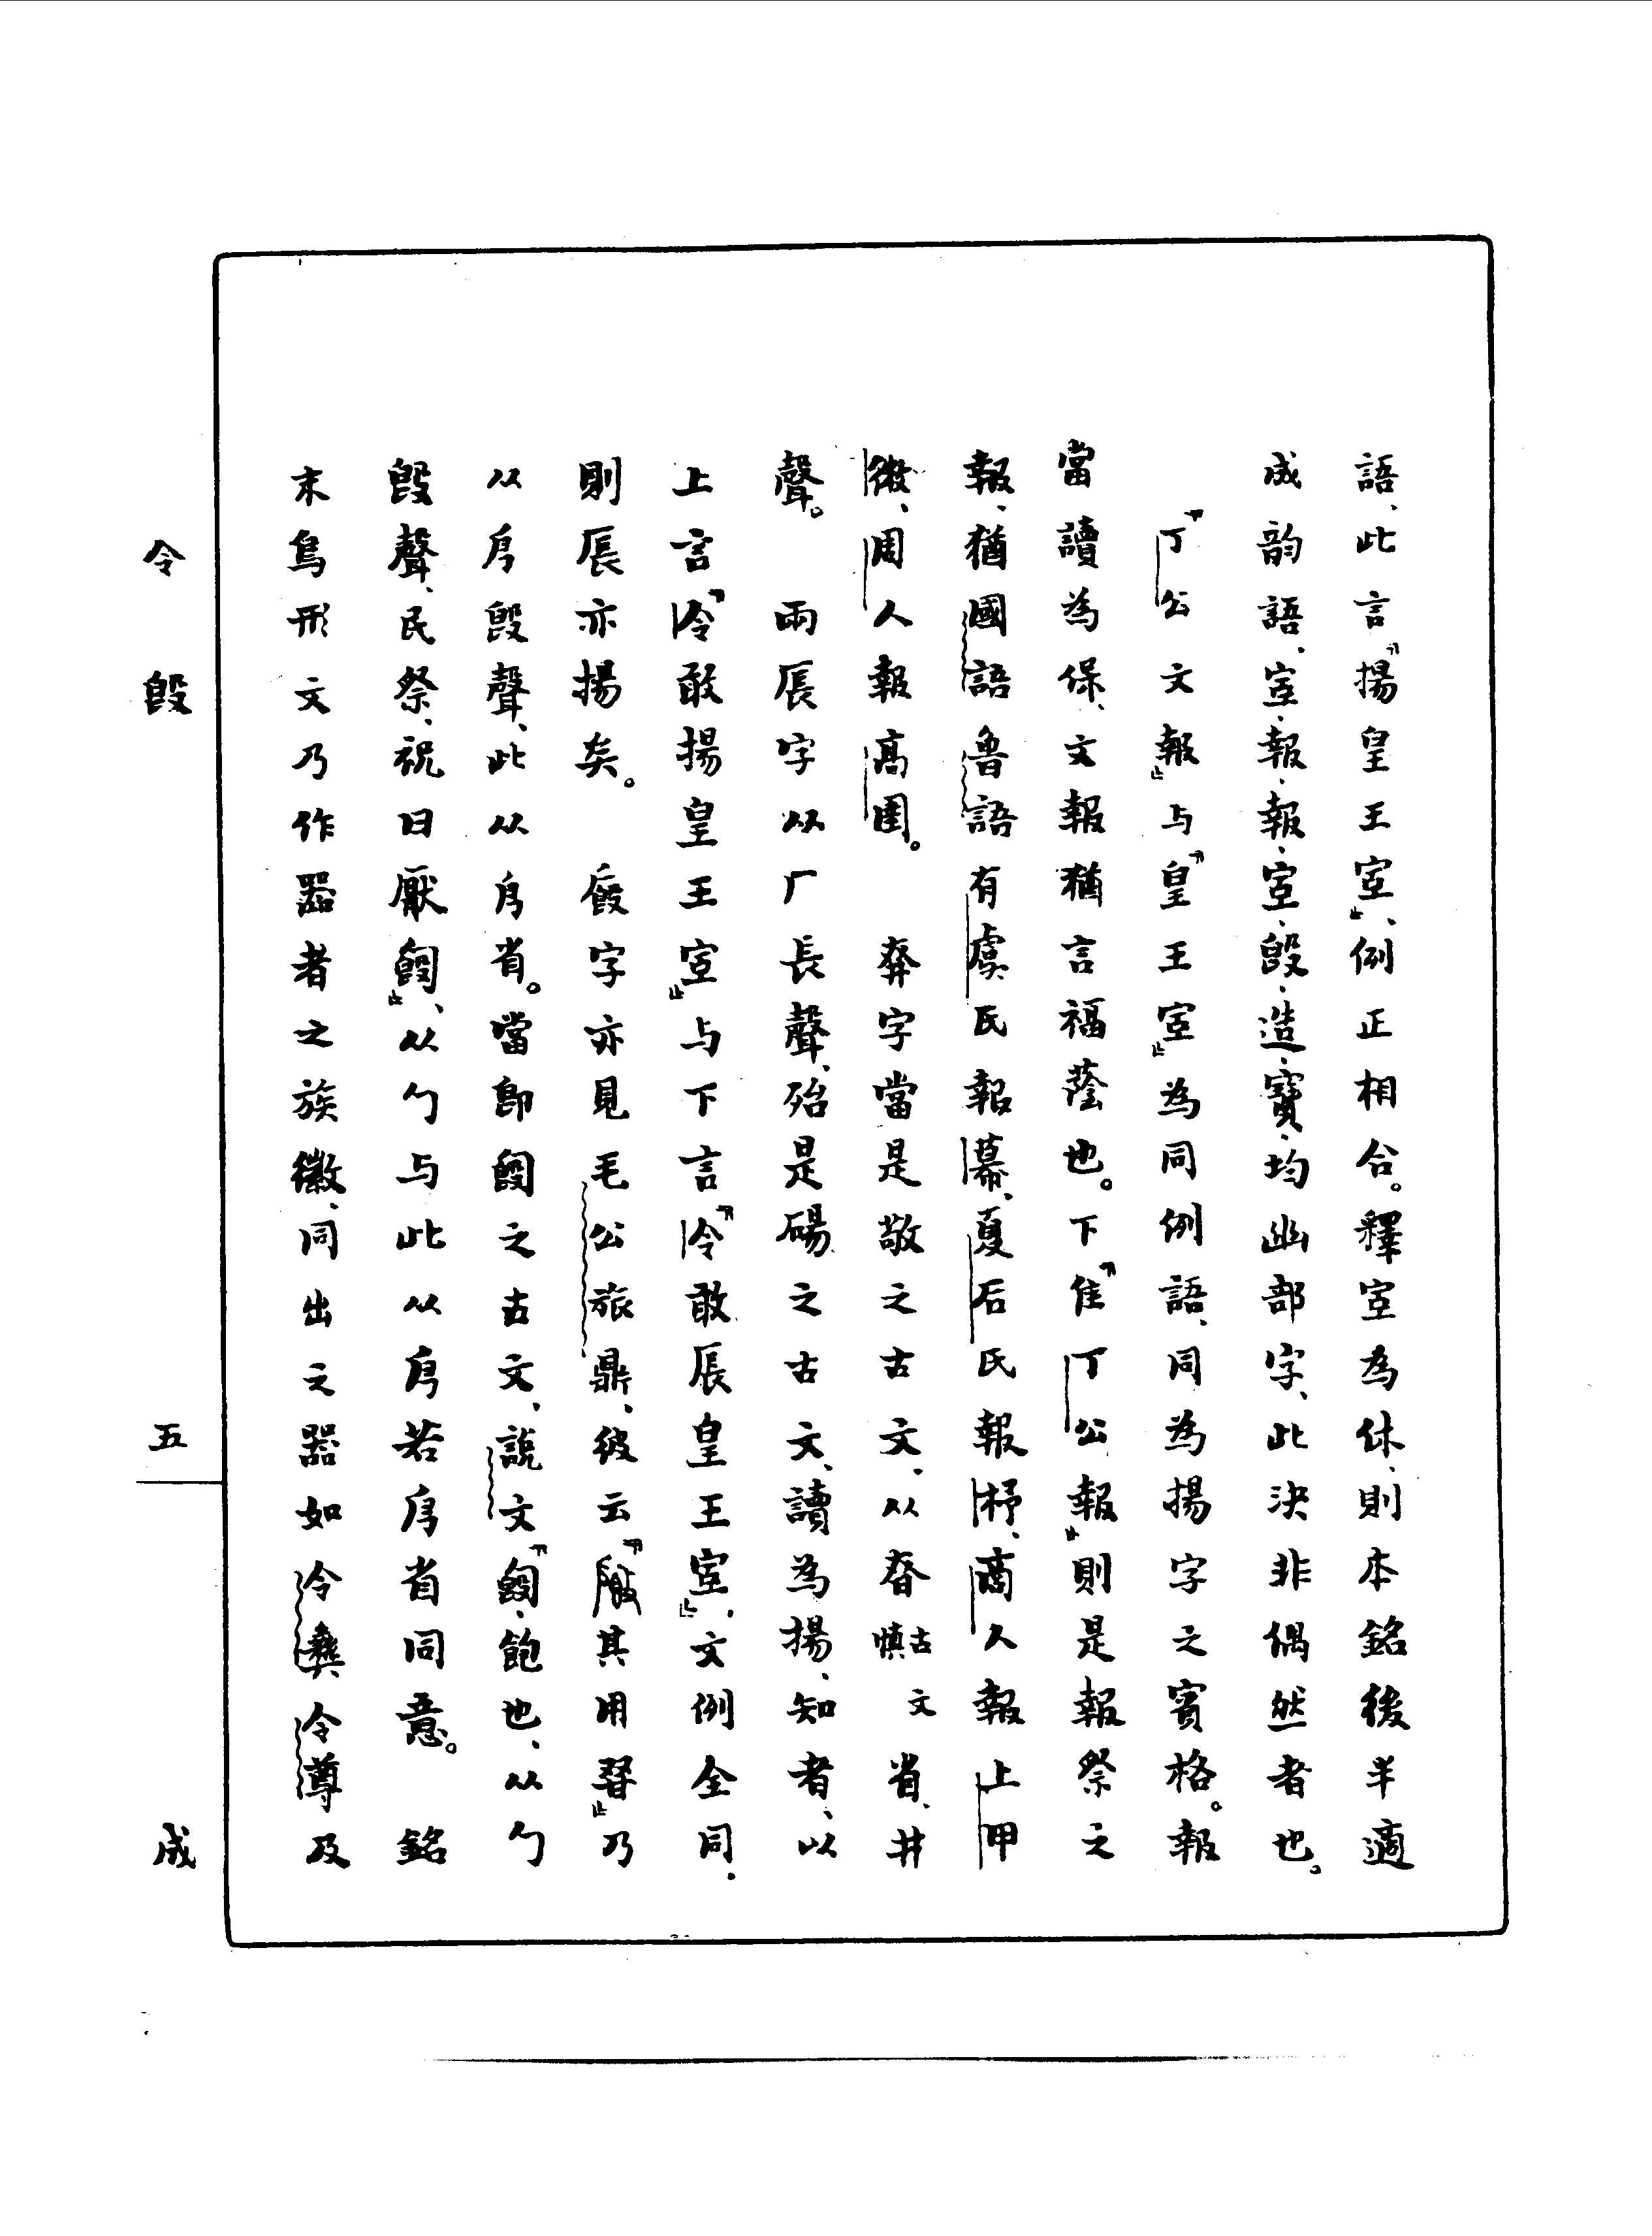 語、此言『揚皇王室』、例正相合。釋室為休、則本銘後半適
成韵語、室・報・報・室・𣪘・造・寶・均幽部字、此決非偶然者也。
『丁公文報』与『皇王室』為同例語、同為揚字之賓格。報
當讀為保、文報猶言福蔭也。下『隹丁公報』則是報祭之
報、猶國語魯語有虞氏報幕、夏后氏報杼、商人報上甲
微、周人報高圉。 㚘字當是敬之古文、从昚古文慎省、井
聲。 兩㕂字从厂長聲、殆是碭之古文、讀為揚、知者、以
上言『令敢揚皇王室』与下言『令敢㕂皇王室』、文例全同、
則㕂亦揚矣。 𠪚字亦見毛公旅鼎、彼云『其用友』乃
从𠂆𣪘聲、此从𠂆省。當即䬵之古文、說文『䬵、飽也、从勹
𣪘聲、民祭、祝曰厭䬵』、从勹与此从𠂆若𠂆省同意。 銘
末鳥形文乃作器者之族徽、同出之器如令彝令尊及
令𣪘
五
成